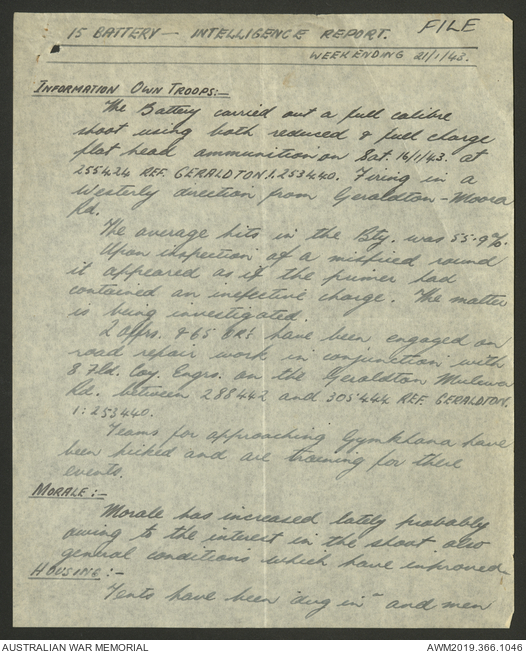 FILE
15 BATTERY — INTELLIGENCE REPORT.
WEEK ENDING 21/1/43.
INFORMATION OWN TROOPS:—
The Battery carried out a full calibre
shoot using both reduced & full charge
flat head ammunition on Sat. 16/1/43. at
255424 REF. GERALDTON 1:253440. Firing in a
Westerly direction from Geraldton - Moora
Rd.
The average hits in the Bty. was 55.9%.
Upon inspection of a misfired round
it appeared as if the primer had
contained an inefective charge. The matter
is being investigated.
2 Offrs. & 65 ORs have been engaged on
road repair work in conjunction with
8 Fld. Coy. Engrs. on the Geraldton Mulewa
Rd. between 288442 and 305444 REF. GERALDTON.
1:253440.
Teams for approaching Gymkhana have
been picked and are training for there
events.
MORALE:—
Morale has increased lately probably
owing to the interest in the shoot also
general conditions which have improved.
HOUSING:—
Tents have been "dug in" and men
AUSTRALIAN WAR MEMORIAL
AWM2019.366.1046